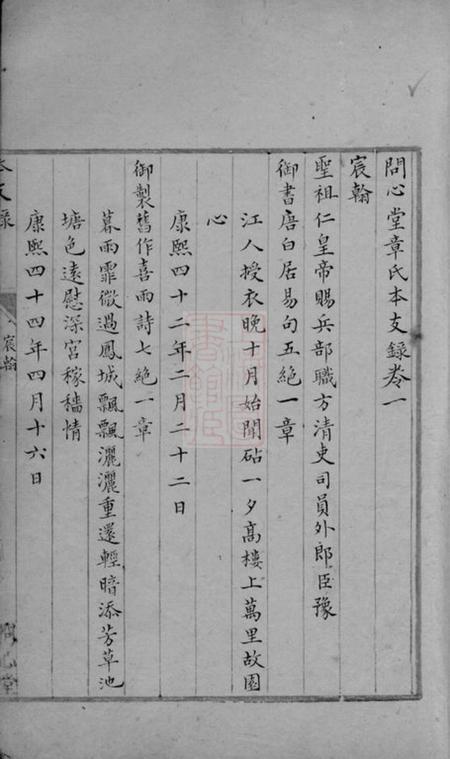 問心堂章氏本支錄卷一
宸翰
聖祖仁皇帝賜兵部職方清吏司員外郎臣豫
御書唐白居易句五絕一章
江人授衣晚十月始聞砧一夕高樓上萬里故園
心
康熙四十二年二月二十二日
御製舊作喜雨詩七絕一章
暮雨霏微過鳳城飄飄灑灑重還輕暗添芳草池
塘色遠慰深宮稼穡情
康熙四十四年四月十六日
本支錄
宸翰
問心堂